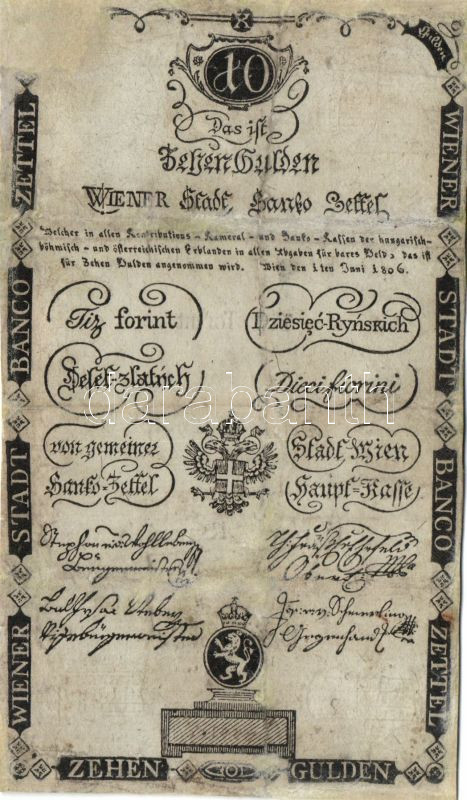 Gulden
10
Das ist
Zehen Gulden
WIENER Stadt, Banko Zettel
Welcher in allen Kontributions - Kameral - und Banko - Kassen der hungarisch-
böhmisch - und österreichischen Erblanden in allen Abgaben für bares Geld, das ist
für Zehen Gulden angenommen wird. Wien den 1ten Juni 1806.
Tiz forint
Dziesięć-Ryńskich
Deset-zlatých
Dieci fiorini
von gemeiner
Stadt Wien
Banko-Zettel
Haupt-Kasse
darabanth
Stephan
Burgermeister
Ober
Vizebürgermeister
WIENER STADT BANCO ZETTEL
WIENER STADT BANCO ZETTEL
ZEHEN 10 GULDEN